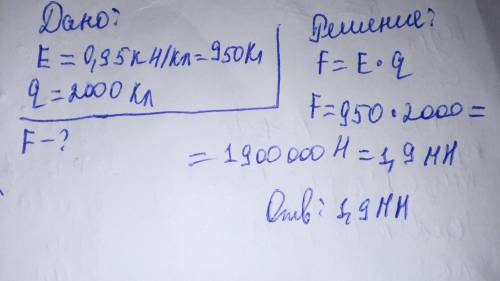 Дано:
E = 0,95 кН/кл = 950 Кл
q = 2000 Кл
F - ?
Решение:
F = E · q
F = 950 · 2000 =
= 1900 000 Н = 1,9 НН
Отв: 1,9 НН